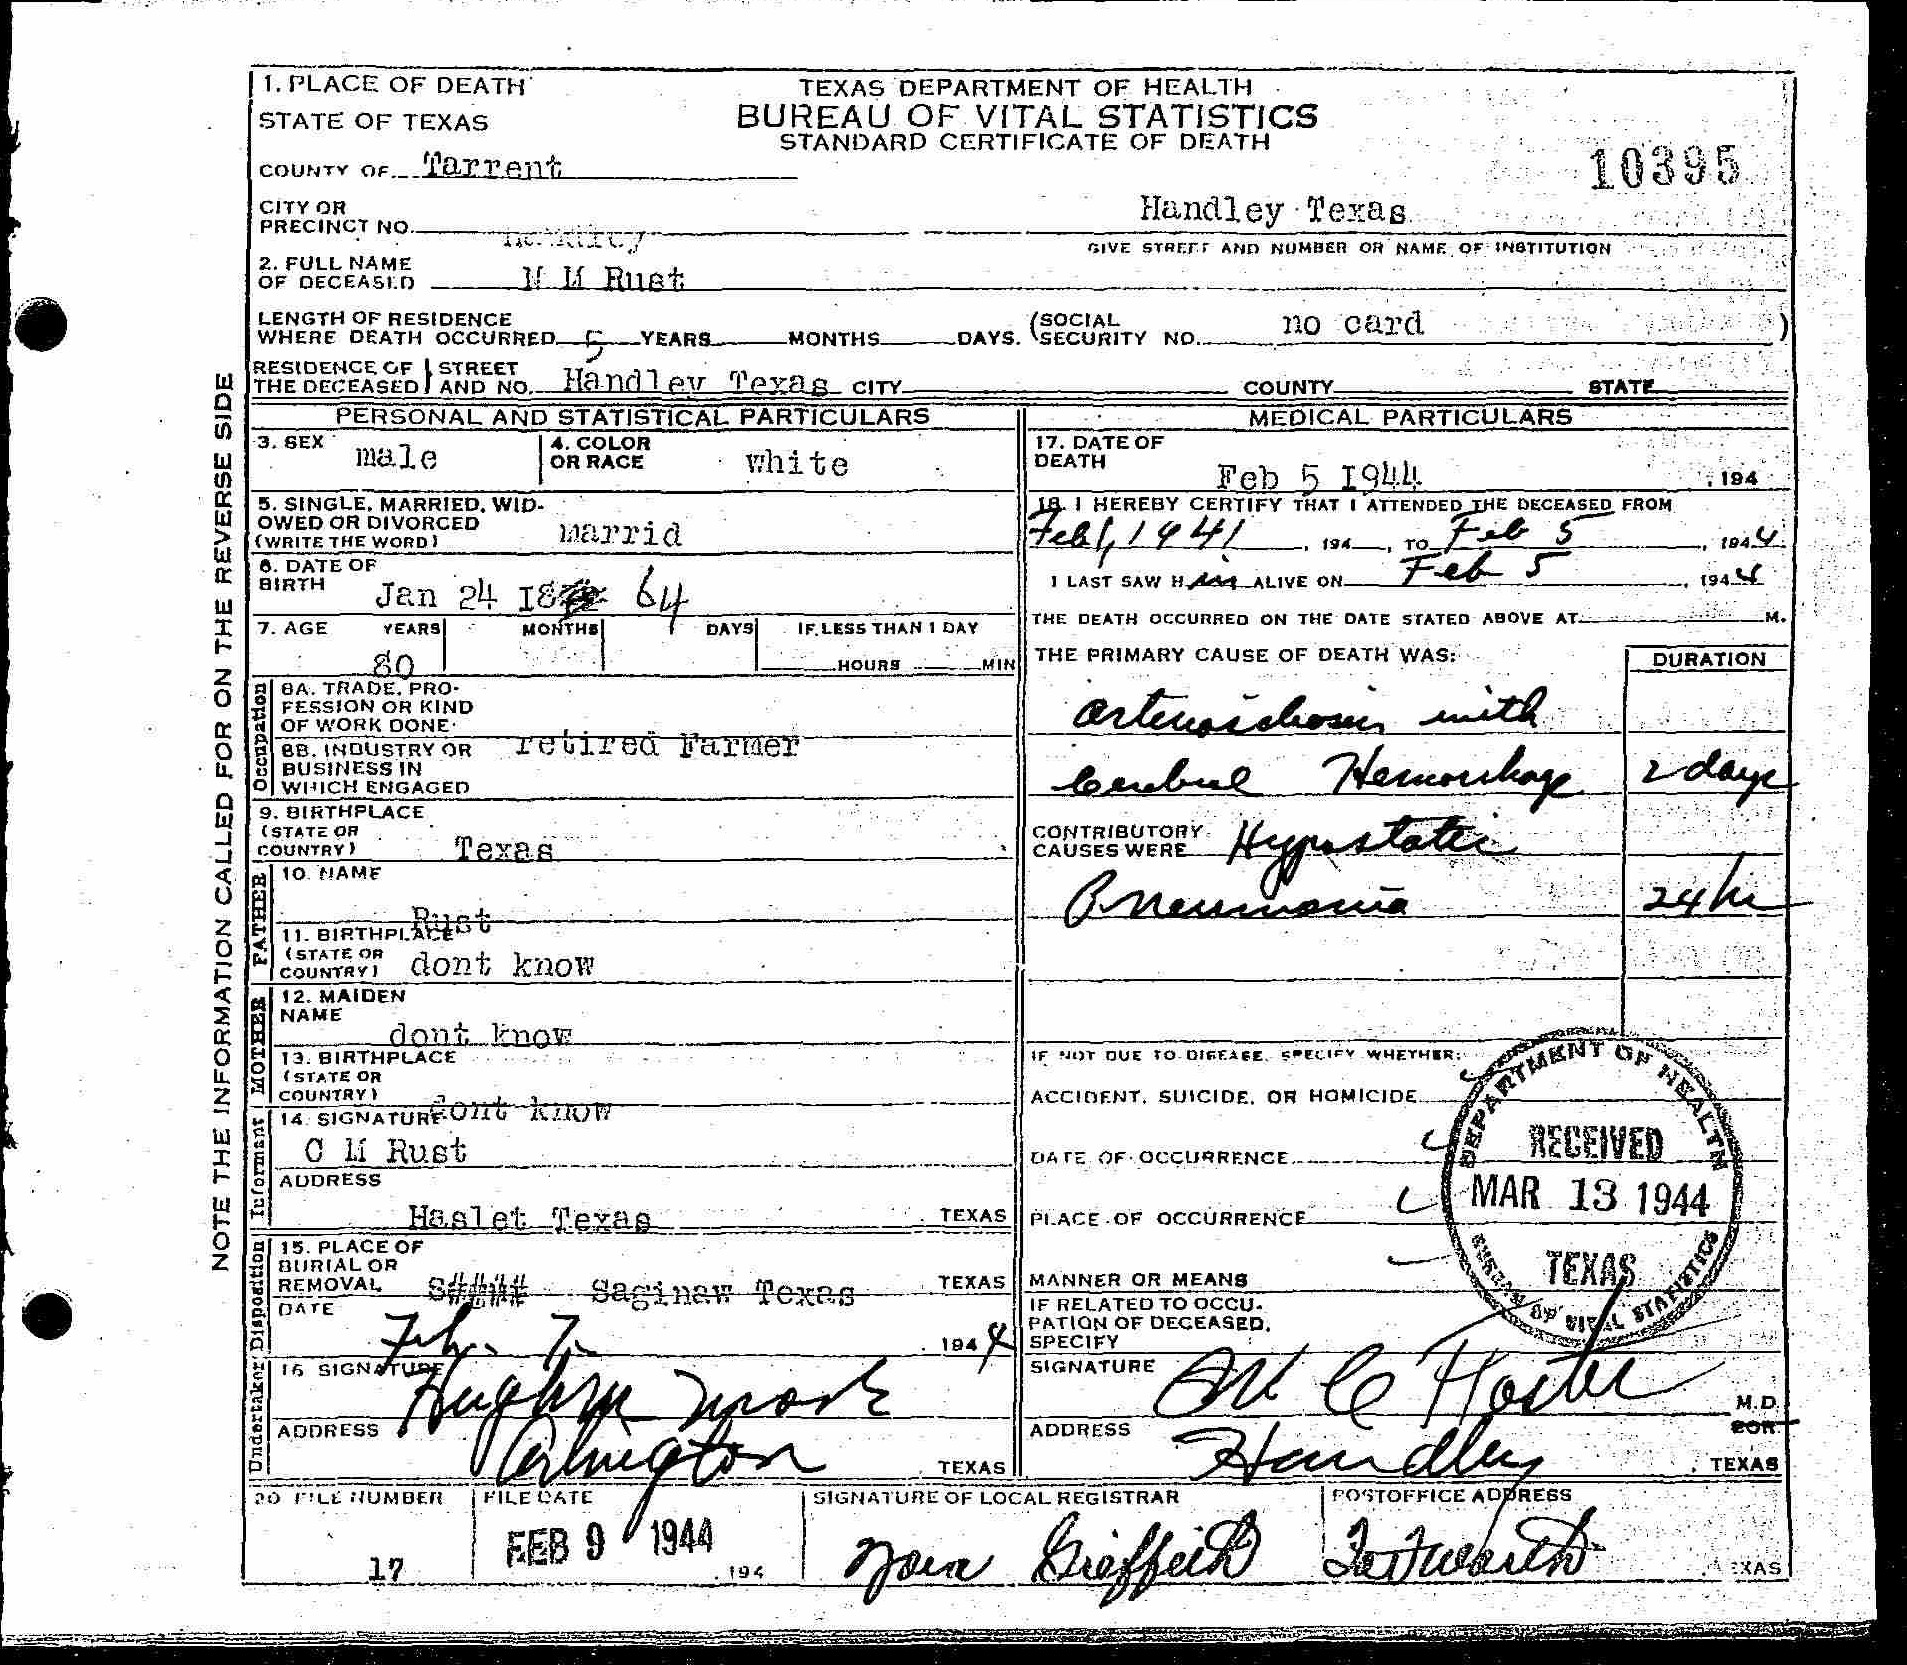 1. PLACE OF DEATH
STATE OF TEXAS
COUNTY OF Tarrent
TEXAS DEPARTMENT OF HEALTH
BUREAU OF VITAL STATISTICS
STANDARD CERTIFICATE OF DEATH
10395
CITY OR
PRECINCT NO. Handley
Handley Texas
GIVE STREET AND NUMBER OR NAME OF INSTITUTION
2. FULL NAME
OF DECEASED M Rust
LENGTH OF RESIDENCE
WHERE DEATH OCCURRED 5 YEARS MONTHS DAYS. (SOCIAL SECURITY NO. no card )
RESIDENCE OF THE DECEASED STREET AND NO. Handley Texas CITY COUNTY STATE
NOTE THE INFORMATION CALLED FOR ON THE REVERSE SIDE
PERSONAL AND STATISTICAL PARTICULARS
3. SEX male
4. COLOR OR RACE white
5. SINGLE, MARRIED, WID-
OWED OR DIVORCED
(WRITE THE WORD) marrid
6. DATE OF
BIRTH Jan 24 I8 64
7. AGE YEARS MONTHS DAYS IF LESS THAN 1 DAY
80 HOURS MIN
Occupation
8A. TRADE, PRO-
FESSION OR KIND
OF WORK DONE
retired Farmer
8B. INDUSTRY OR
BUSINESS IN
WHICH ENGAGED
9. BIRTHPLACE
(STATE OR
COUNTRY) Texas
FATHER
10. NAME
Rust
11. BIRTHPLACE
(STATE OR
COUNTRY) dont know
MOTHER
12. MAIDEN
NAME
dont know
13. BIRTHPLACE
(STATE OR
COUNTRY)
dont know
Informant
14. SIGNATURE
C M Rust
ADDRESS
Haslet Texas TEXAS
Disposition
15. PLACE OF
BURIAL OR
REMOVAL S#### Saginaw Texas TEXAS
DATE
Feb. 7 1944
Undertaker
16 SIGNATURE
Hugh M Moore
ADDRESS
Arlington TEXAS
MEDICAL PARTICULARS
17. DATE OF
DEATH
Feb 5 I944 , 194
18. I HEREBY CERTIFY THAT I ATTENDED THE DECEASED FROM
Feb 1, 1941 , 194 , TO Feb 5 , 1944
I LAST SAW H im ALIVE ON Feb 5 , 1944
THE DEATH OCCURRED ON THE DATE STATED ABOVE AT M.
THE PRIMARY CAUSE OF DEATH WAS: DURATION
with
Cerebral Hemorrhage 2 days
CONTRIBUTORY
CAUSES WERE Hypostatic
Pneumonia 24 hr
IF NOT DUE TO DISEASE, SPECIFY WHETHER:
ACCIDENT, SUICIDE, OR HOMICIDE
DATE OF OCCURRENCE
PLACE OF OCCURRENCE
MANNER OR MEANS
IF RELATED TO OCCU-
PATION OF DECEASED,
SPECIFY
DEPARTMENT OF HEALTH
RECEIVED
MAR 13 1944
TEXAS
BUREAU OF VITAL STATISTICS
SIGNATURE
M.D.
COR.
ADDRESS
Handley , TEXAS
20 FILE NUMBER
17
FILE DATE
FEB 9 1944
, 194
SIGNATURE OF LOCAL REGISTRAR
Nora Griffith
POSTOFFICE ADDRESS
Ft Worth
EXAS